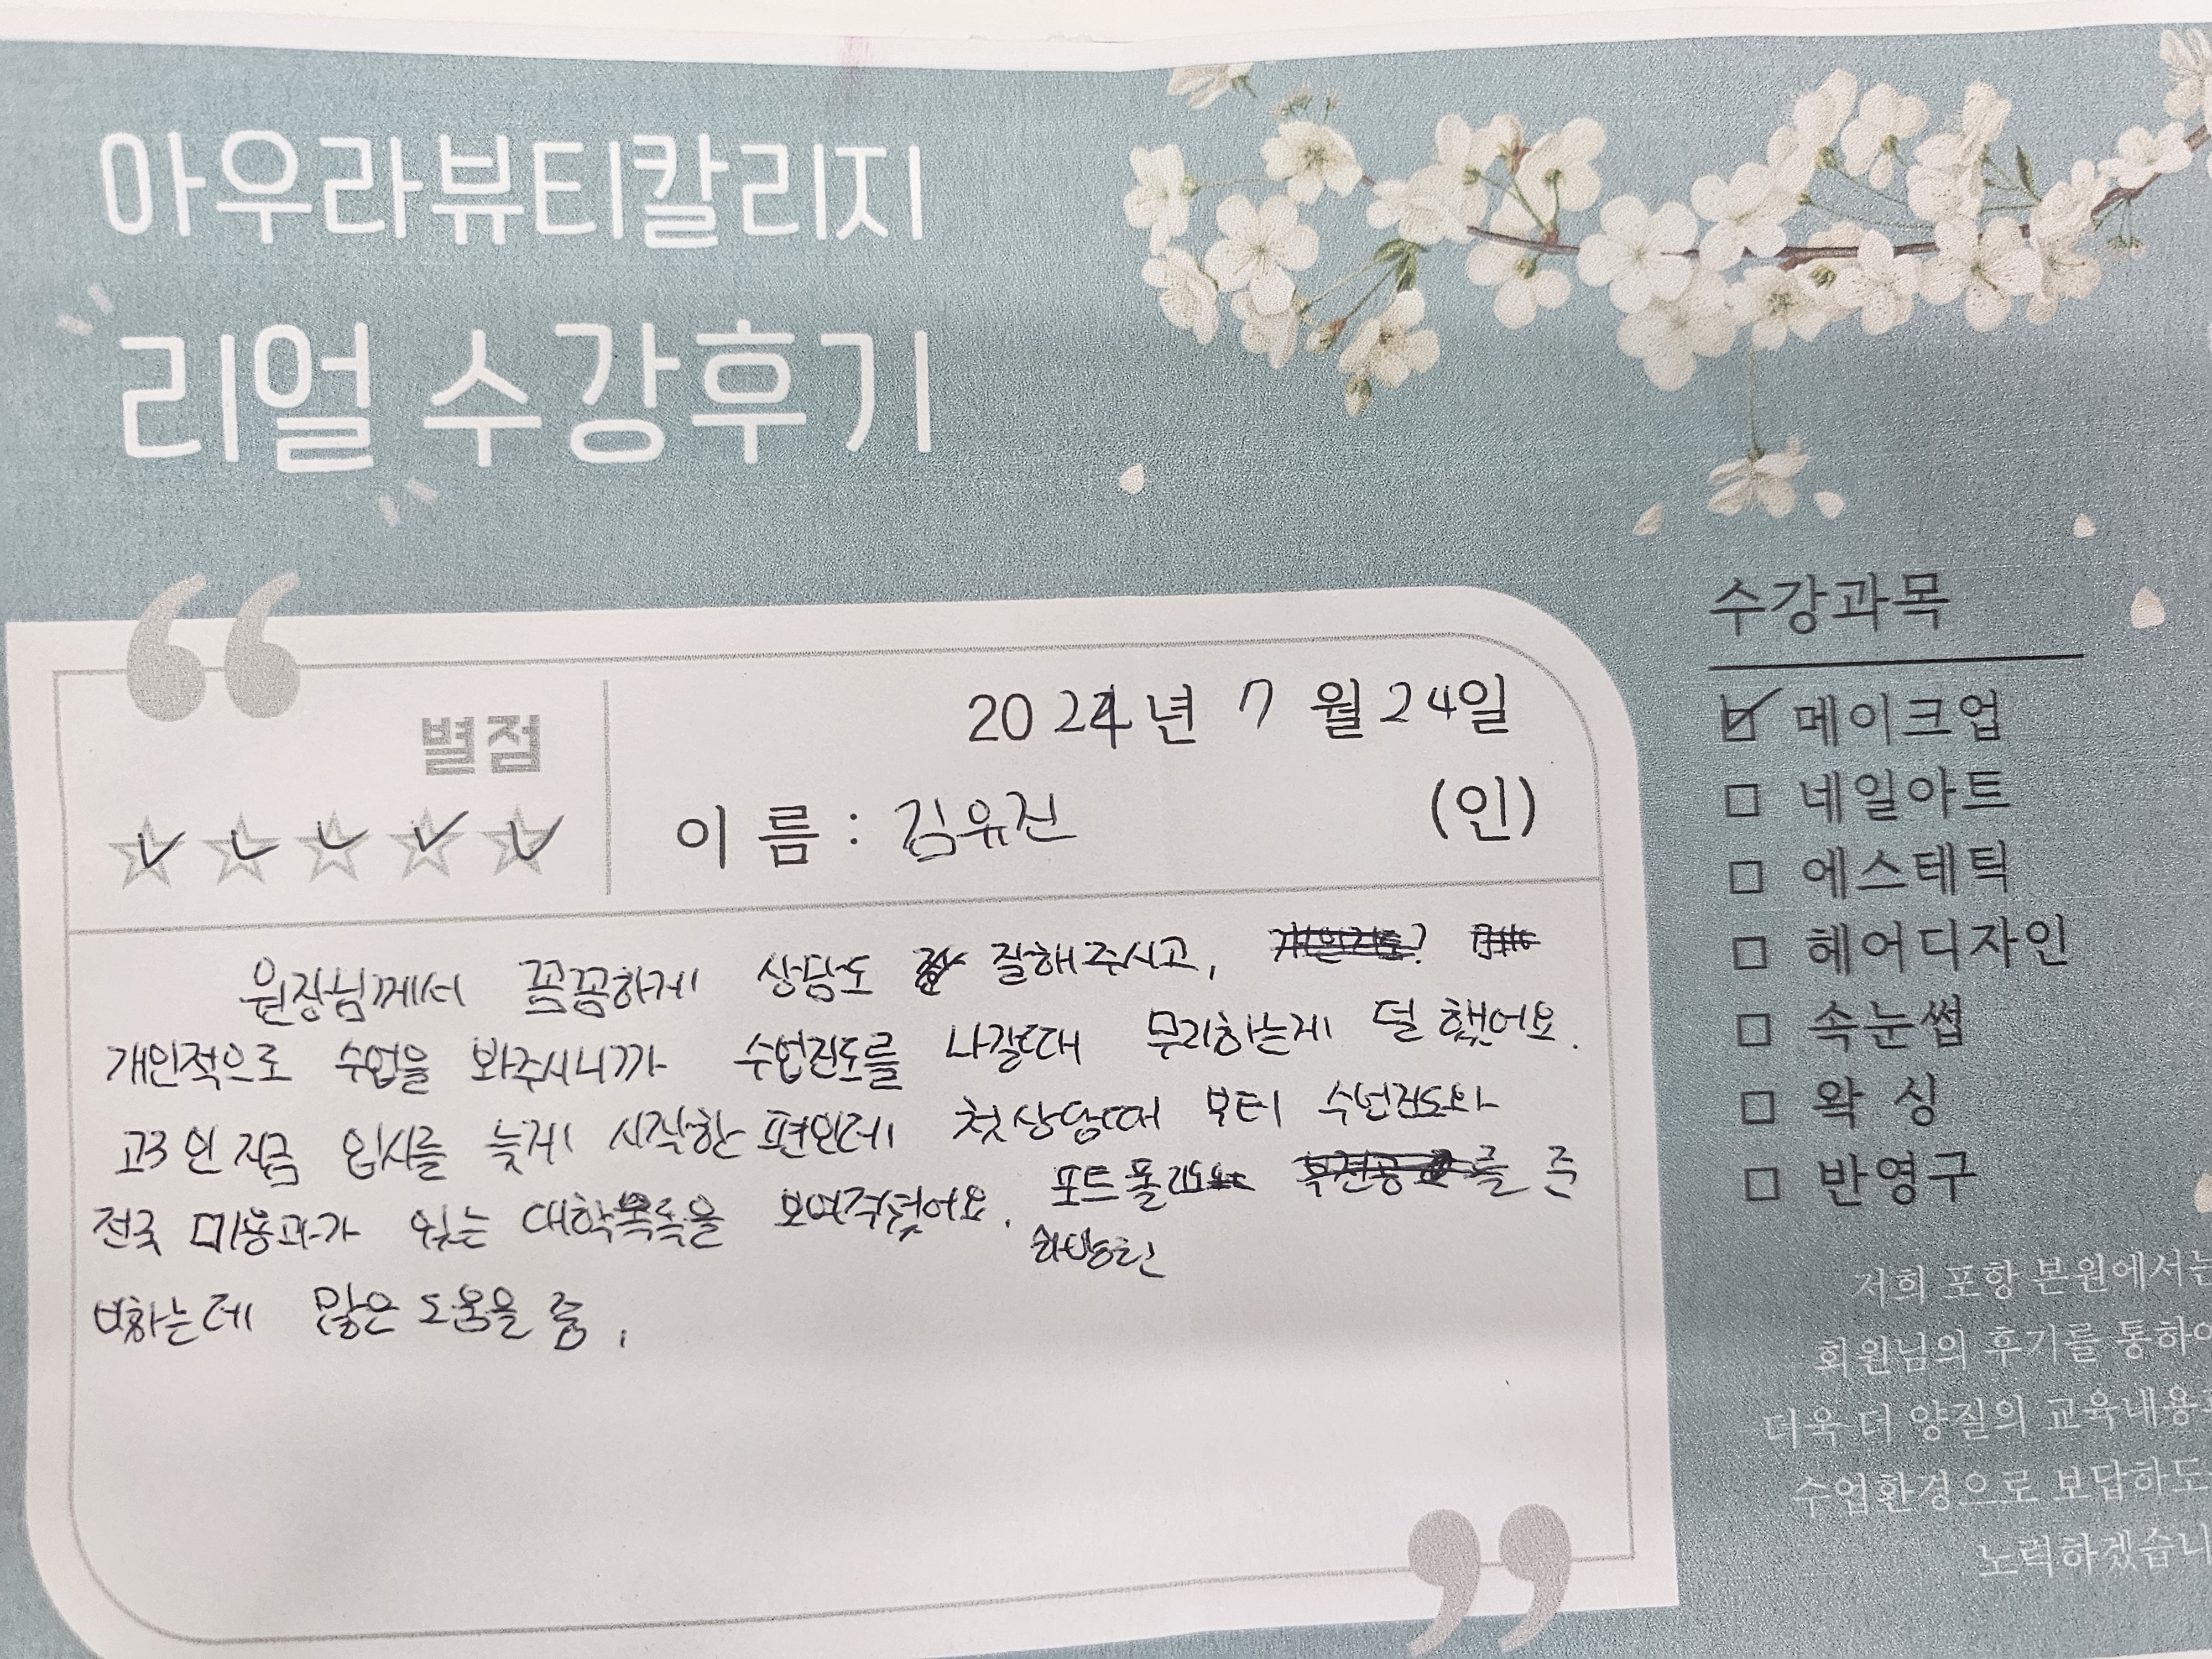 아우라뷰티칼리지
리얼 수강후기
별점
2024년 7월 24일
이름 : 김유진 (인)
원장님께서 꼼꼼하게 상담도 잘해주시고,
개인적으로 수업을 봐주시니까 수업진도를 나갈때 무리하는게 덜 했어요.
고3인 지금 입시를 늦게 시작한 편인데 첫상담때 부터 수업진도와
전국 미용과가 있는 대학목록을 보여주셨어요. 포트폴리오를 준
비하는데 많은 도움을 줌.
수강과목
메이크업
네일아트
에스테틱
헤어디자인
속눈썹
왁싱
반영구
저희 포항 본원에서는
회원님의 후기를 통하여
더욱 더 양질의 교육내용
수업환경으로 보답하도
노력하겠습니